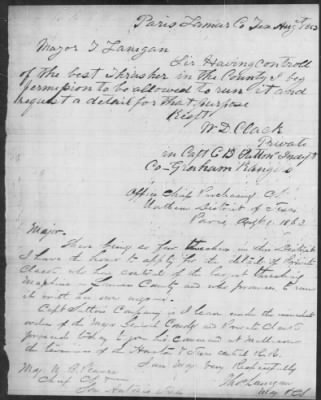 Paris Lamar Co Tex Aug 1 1863
Major T Lanigan
Sir Having controll
of the best Thrasher in the County I beg
permission to be allowed to run it and
request a detail for that purpose
Respt
W. D. Clack
Private
in Capt G B Sutton
Co Graham Rangers
Office Chief Purchasing C.S.
Northern District of Texas
Paris, Aug 1. 1863
Major.
There being so few thrashers in this District
I have the honor to apply for the detail of Private
Clack, who has control of the largest thrashing
Machine in Lamar County and who promises to run
it with his own
Capt Suttons Company is I learn under the
orders of the Major General Comdg and Private Clack
the terminus of the Houston &
I am Maj Very Respectfully
Tho Lanigan
Maj & CS
Maj. W. B.
Chief C.S.
San Antonio